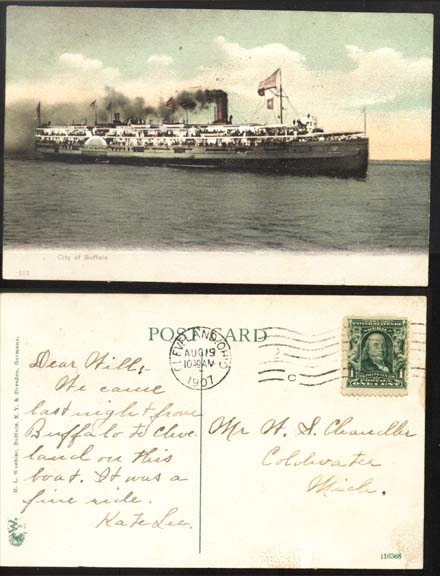 City of Buffalo
117
POST CARD
CLEVELAND, OHIO
AUG 19
10 30 AM
1907
C
1
1
ONE CENT
Dear Will:
We came
last night from
Buffalo to Cleve
land on this
boat. It was a
fine ride.
Kate Lee.
Mr W. S. Chandler
Coldwater
Mich.
W.
116588